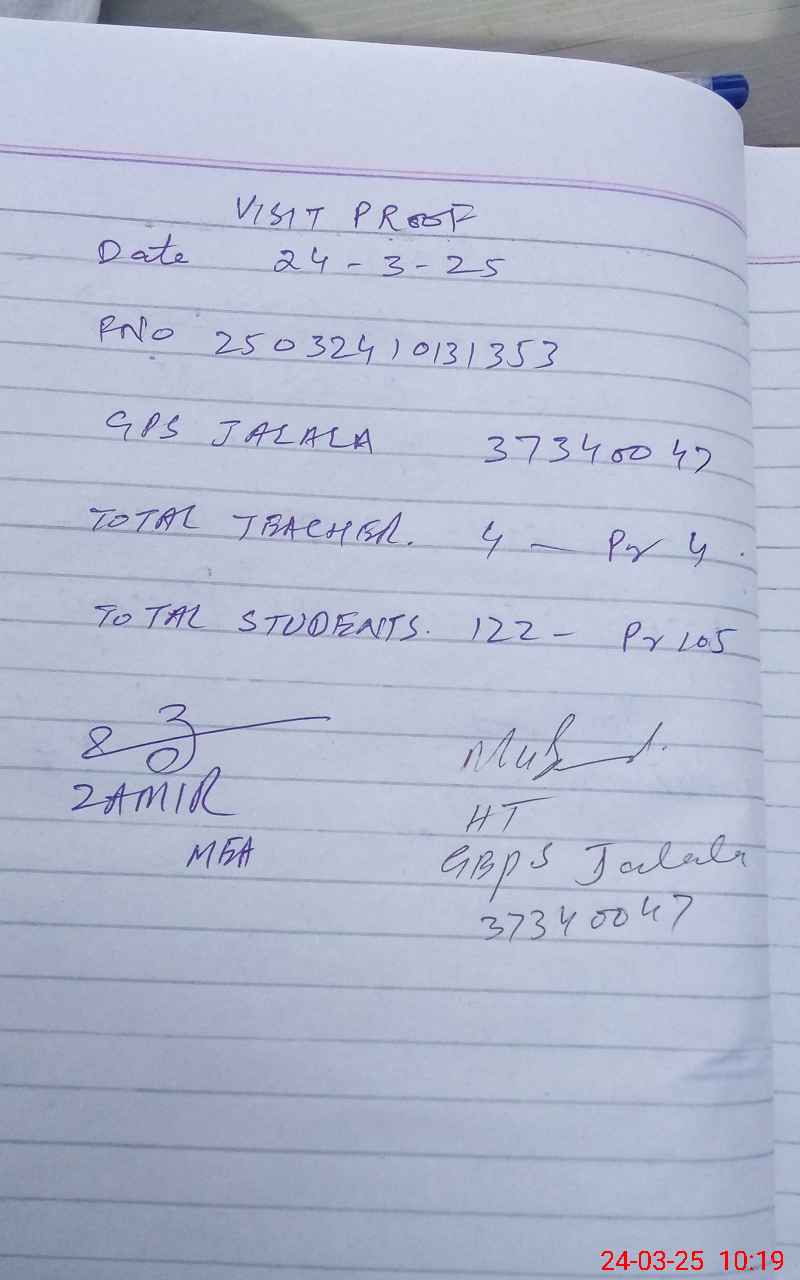 VISIT PROOF
Date 24-3-25
RNO 25032410131353
GPS JALALA 37340047
TOTAL TEACHER. 4 — Pr 4.
TOTAL STUDENTS. 122 - Pr 105
ZAMIR
MEA
HT
GBPS Jalala
37340047
24-03-25 10:19